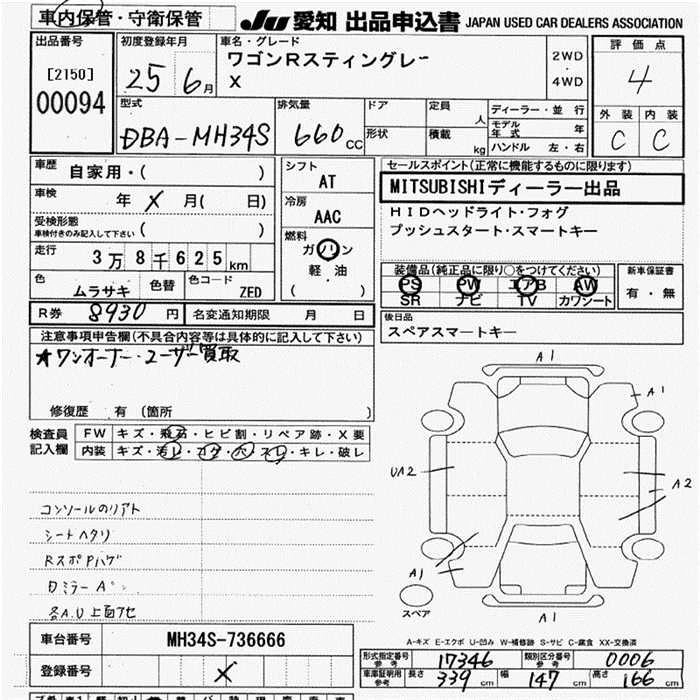 車内保管・守衛保管
JU 愛知 出品申込書 JAPAN USED CAR DEALERS ASSOCIATION
出品番号
[2150]
00094
初度登録年月
25 6月
車名・グレード
ワゴンRスティングレー
X
2WD
・
4WD
評価点
4
外装 内装
C C
型式
DBA-MH34S
排気量
660 CC
ドア
形状
定員 人
積載 kg
ディーラー・並行
モデル年式 年
ハンドル 左・右
車歴
自家用・( )
車検
年 X 月( 日)
受検形態
車検付きのみ記入して下さい ( )
走行
3万8千625km
色
ムラサキ
色替
色コード
ZED
シフト
AT
冷房
AAC
燃料
ガソリン
軽・油
( )
R券 8930 円
名変通知期限 月 日
セールスポイント(正常に機能するものに限ります)
MITSUBISHIディーラー出品
HIDヘッドライト・フォグ
プッシュスタート・スマートキー
装備品(純正品に限り○をつけてください)
PS PW エアB AW
SR ナビ TV カワシート
新車保証書
有・無
後日品
スペアスマートキー
注意事項申告欄(不具合内容等は具体的に記入して下さい)
★ワンオーナー・ユーザー買取
修復歴 有 (箇所 )
検査員記入欄
FW キズ・飛石・ヒビ割・リペア跡・X要
内装 キズ・汚レ・コゲ・穴・スレ・キレ・破レ
コンソールのリアト
シートヘタリ
RスポPハゲ
各A.U上面アセ
A1
A1
UA2
A2
A1
A1
スペア
A-キズ E-エクボ U-凹み W-補修跡 S-サビ C-腐食 XX-交換済
車台番号
MH34S-736666
登録番号
X
形式指定番号
参考
17346
類別区分番号
参考
0006
車庫証明用
参考
長さ 339 cm
幅 147 cm
高さ 166 cm